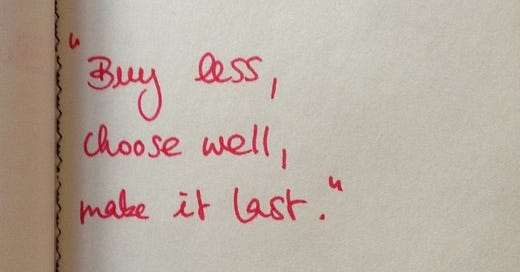 "Buy less,
choose well,
make it last."